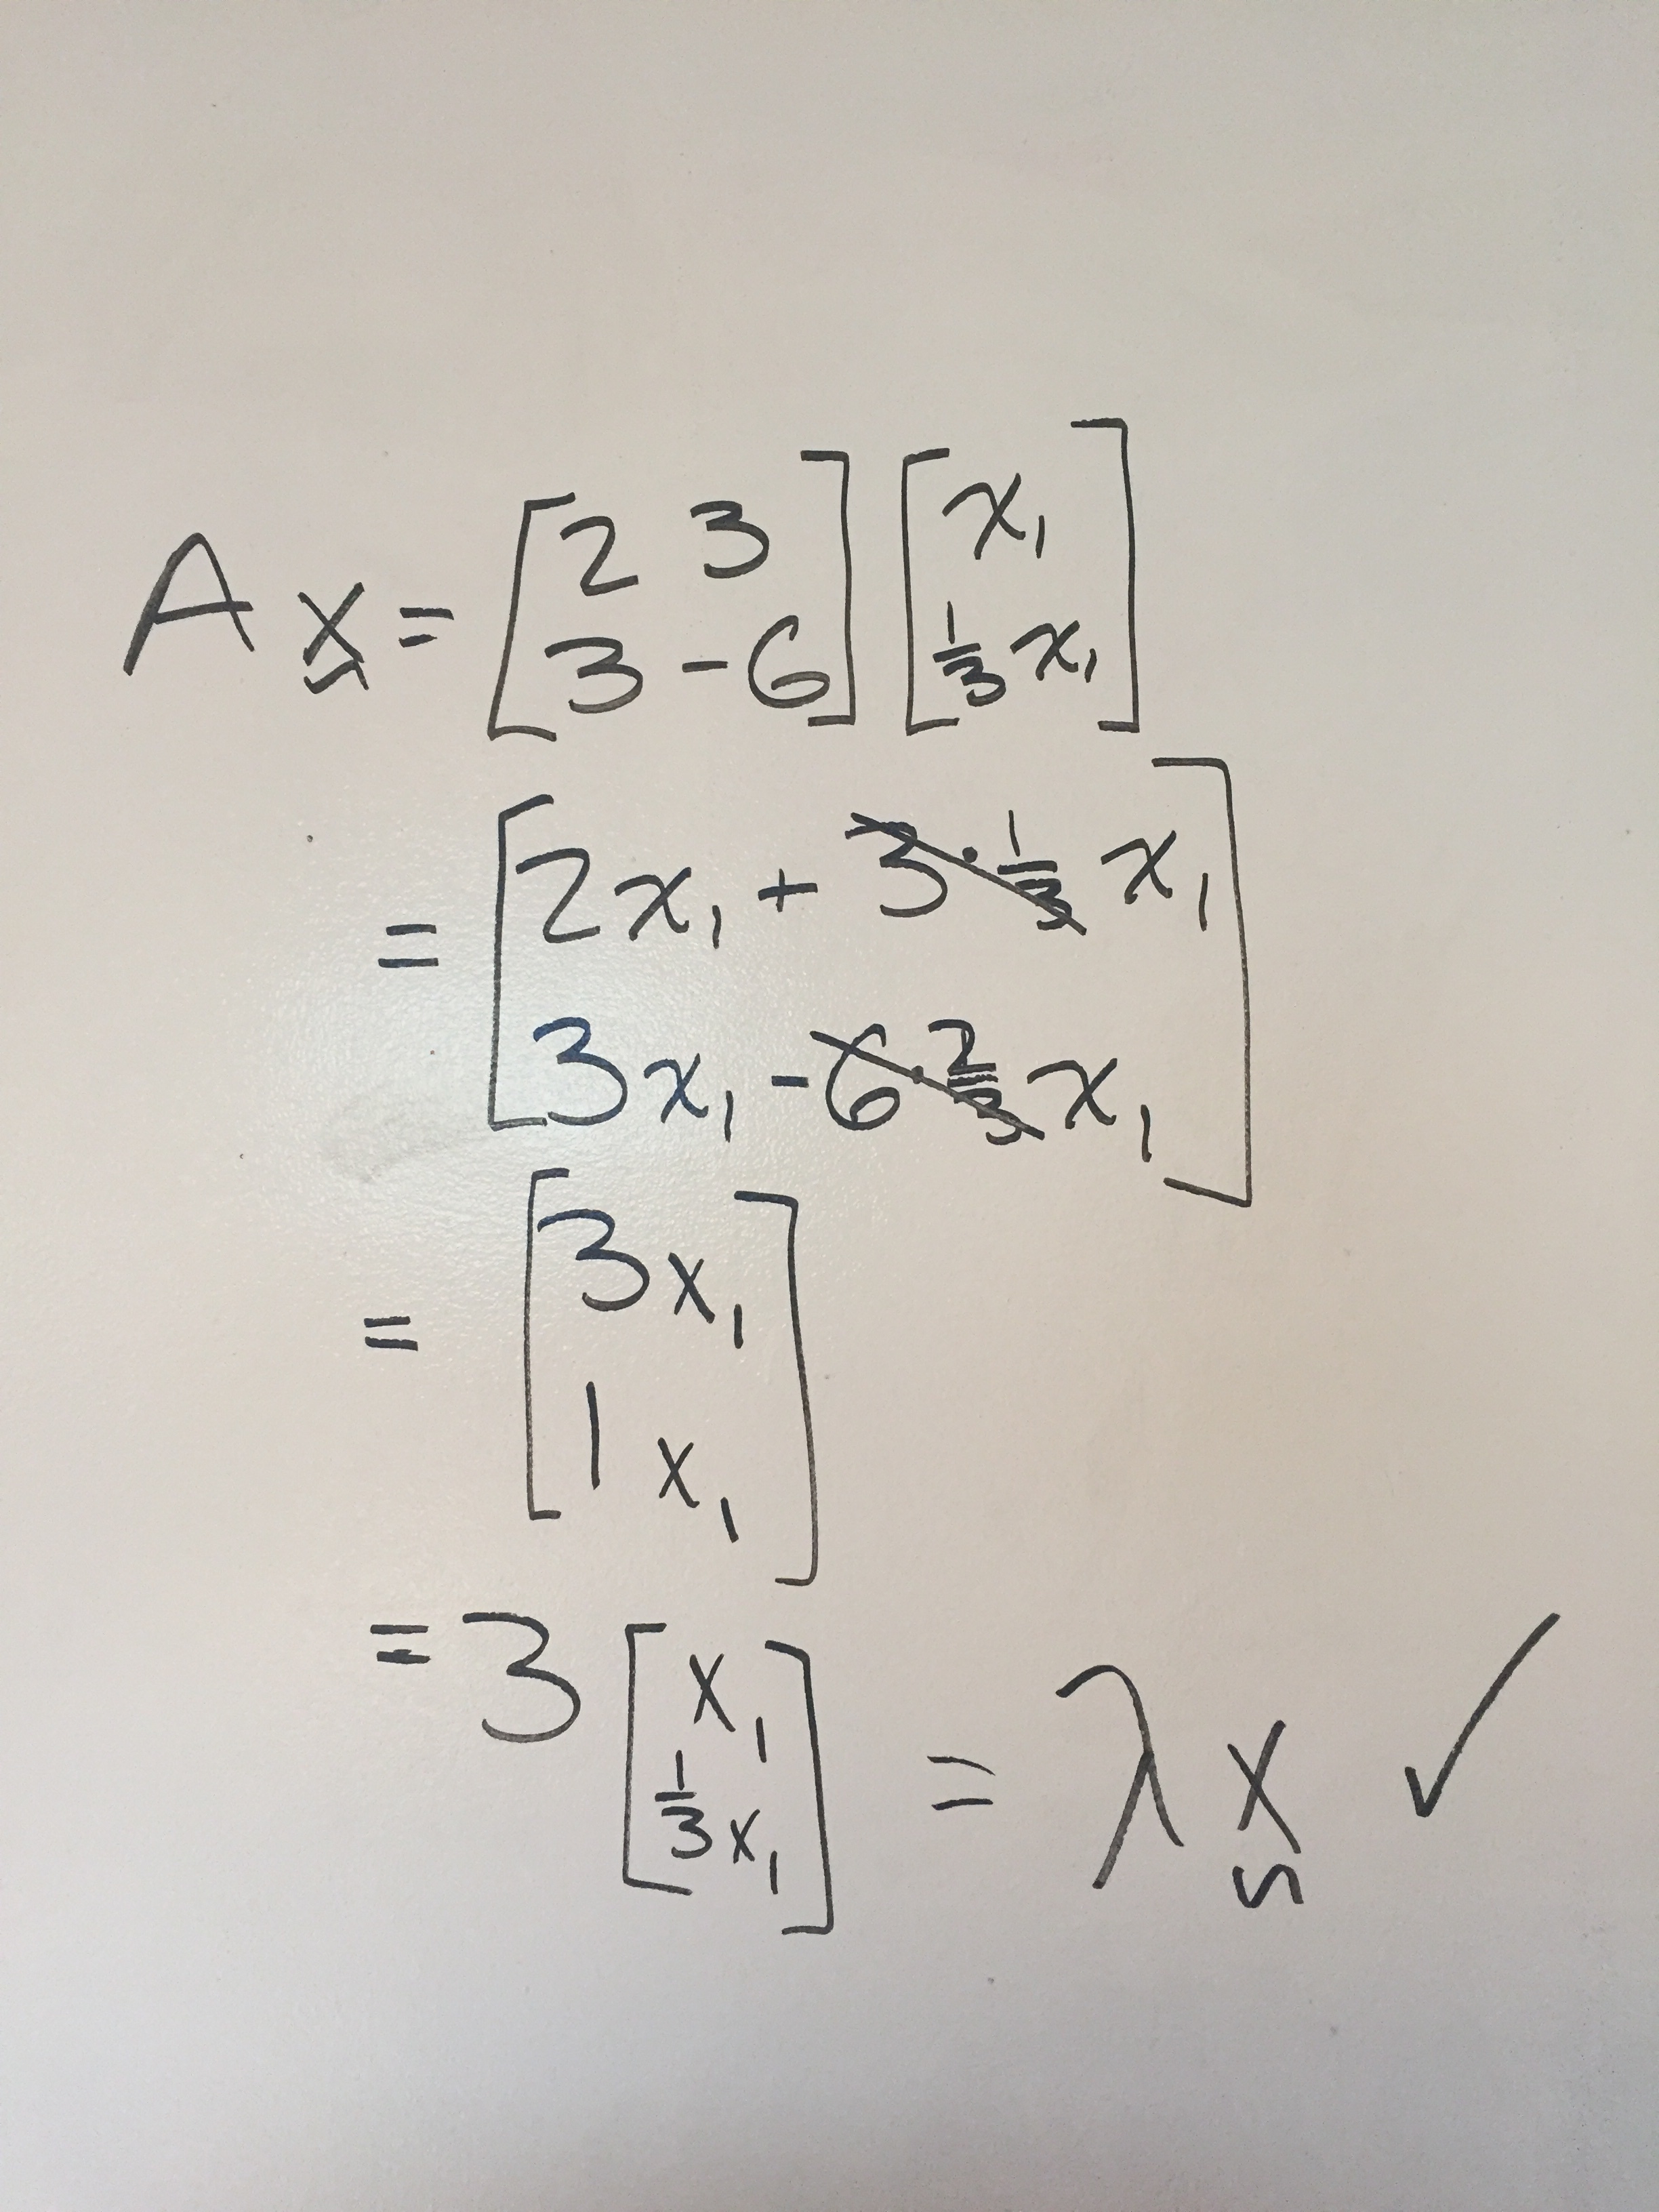 A x = [2 3; 3 -6] [x₁; 1/3 x₁]
= [2x₁ + 3 · 1/3 x₁; 3x₁ - 6 · 2/3 x₁]
= [3x₁; 1x₁]
= 3 [x₁; 1/3 x₁] = λ x ✓